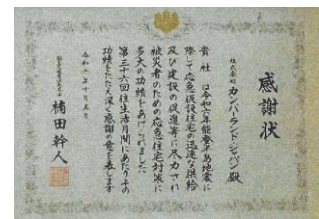 感謝状
株式会社 カンバーランド・ジャパン 殿
貴社は令和六年能登半島地震に
際して応急仮設住宅の迅速な供給
及び建設の促進等に尽力され
被災者のための応急住宅対策に
多大の功績をあげられました
第三十六回住生活月間にあたりその
功績をたたえ深く感謝の意を表します
令和六年十月五日
楠田幹人